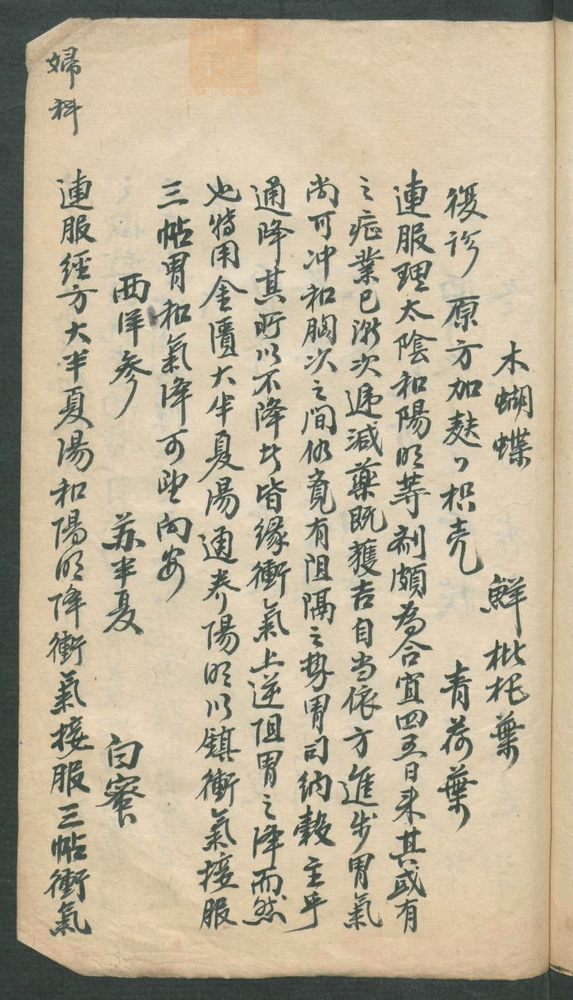 木蝴蝶 鮮枇杷葉
復診 原方加麩炒枳壳 青荷葉
連服理太陰和陽明等劑頗為合宜四五日来其或有
之症業已漸次遞減藥既獲吉自当依方進步胃氣
尚可冲和胸次之間仍覔有阻隔之勢胃司納穀主乎
通降其所以不降者皆緣衝氣上逆阻胃之降而然
也特用金匱大半夏湯通养陽明以鎮衝氣接服
三帖胃和氣降可望向安
西洋參 苏半夏 白蜜
連服經方大半夏湯和陽明降衝氣接服三帖衝氣
婦科